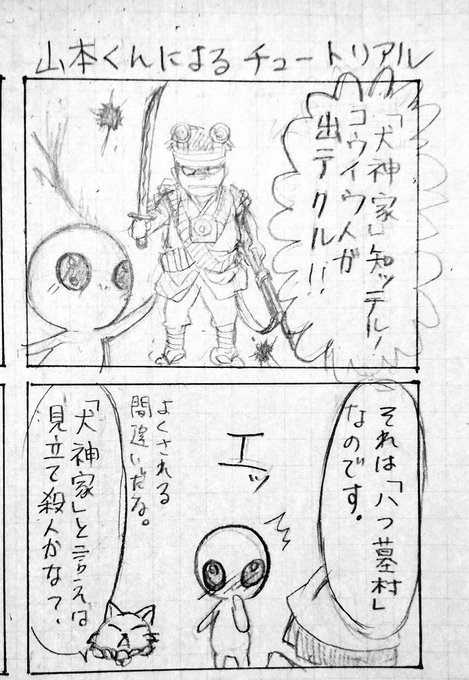 山本くんによるチュートリアル
「犬神家」知ッテル!
コウイウ人が
出テクル!!
それは「八つ墓村」
なのです。
エッ
よくされる
間違いだな。
「犬神家」と言えば
見立て殺人かな?